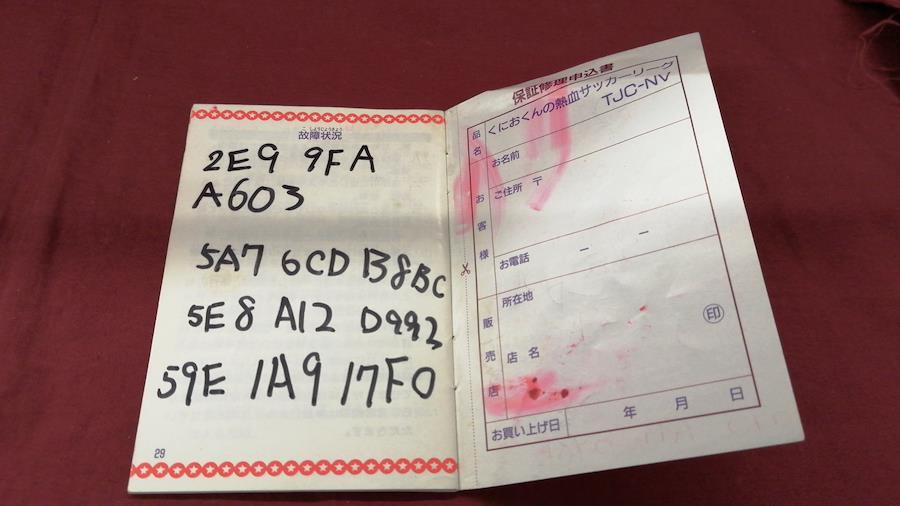 こしょうじょうきょう
故障状況
2E9 9FA
A603
5A7 6CD B8BC
5E8 A12 D992
59E 1A9 17F0
29
保証修理申込書
品名
くにおくんの熱血サッカーリーグ
TJC-NV
お客様
お名前
ご住所 〒
お電話 － －
販売店
所在地
店名
印
お買い上げ日
年 月 日